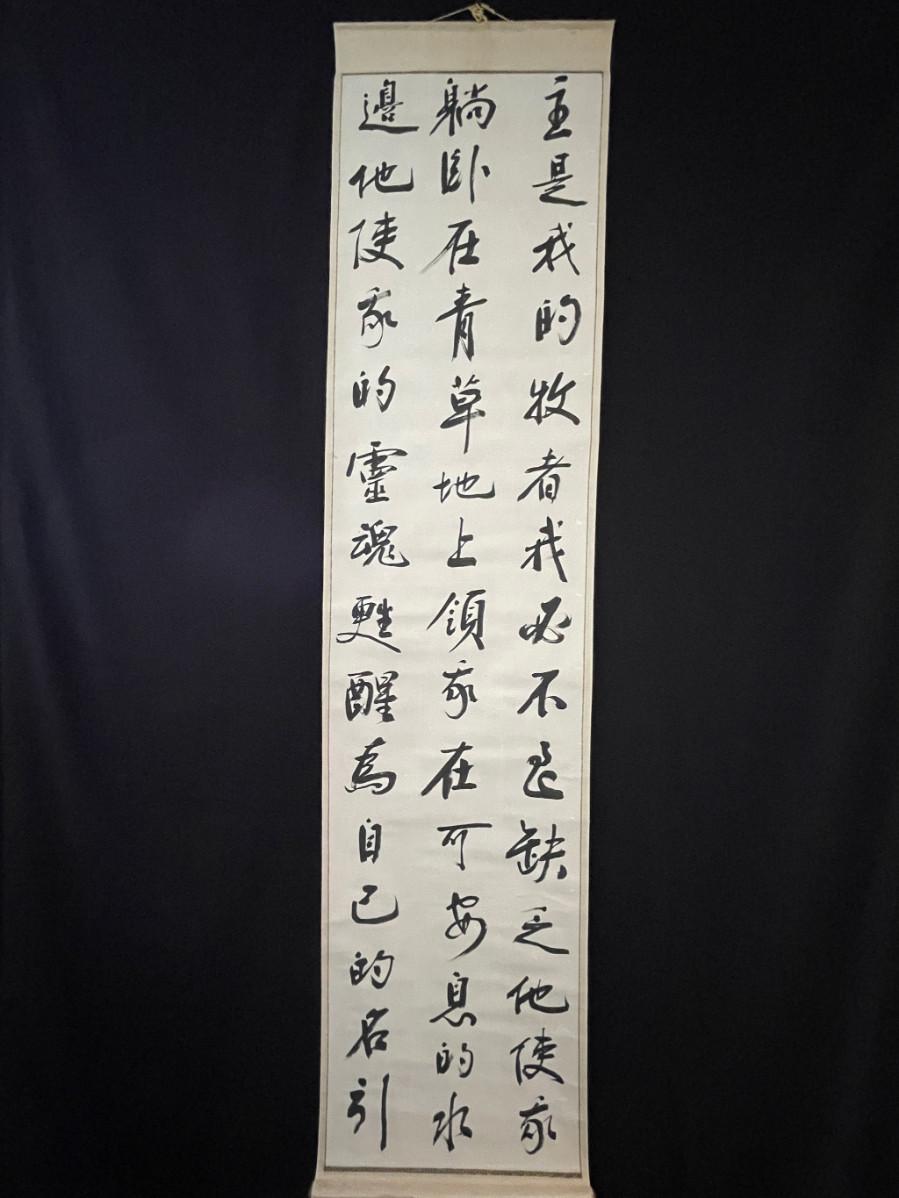 主是我的牧者我必不至缺乏他使我
躺臥在青草地上領我在可安息的水
邊他使我的靈魂甦醒為自己的名引